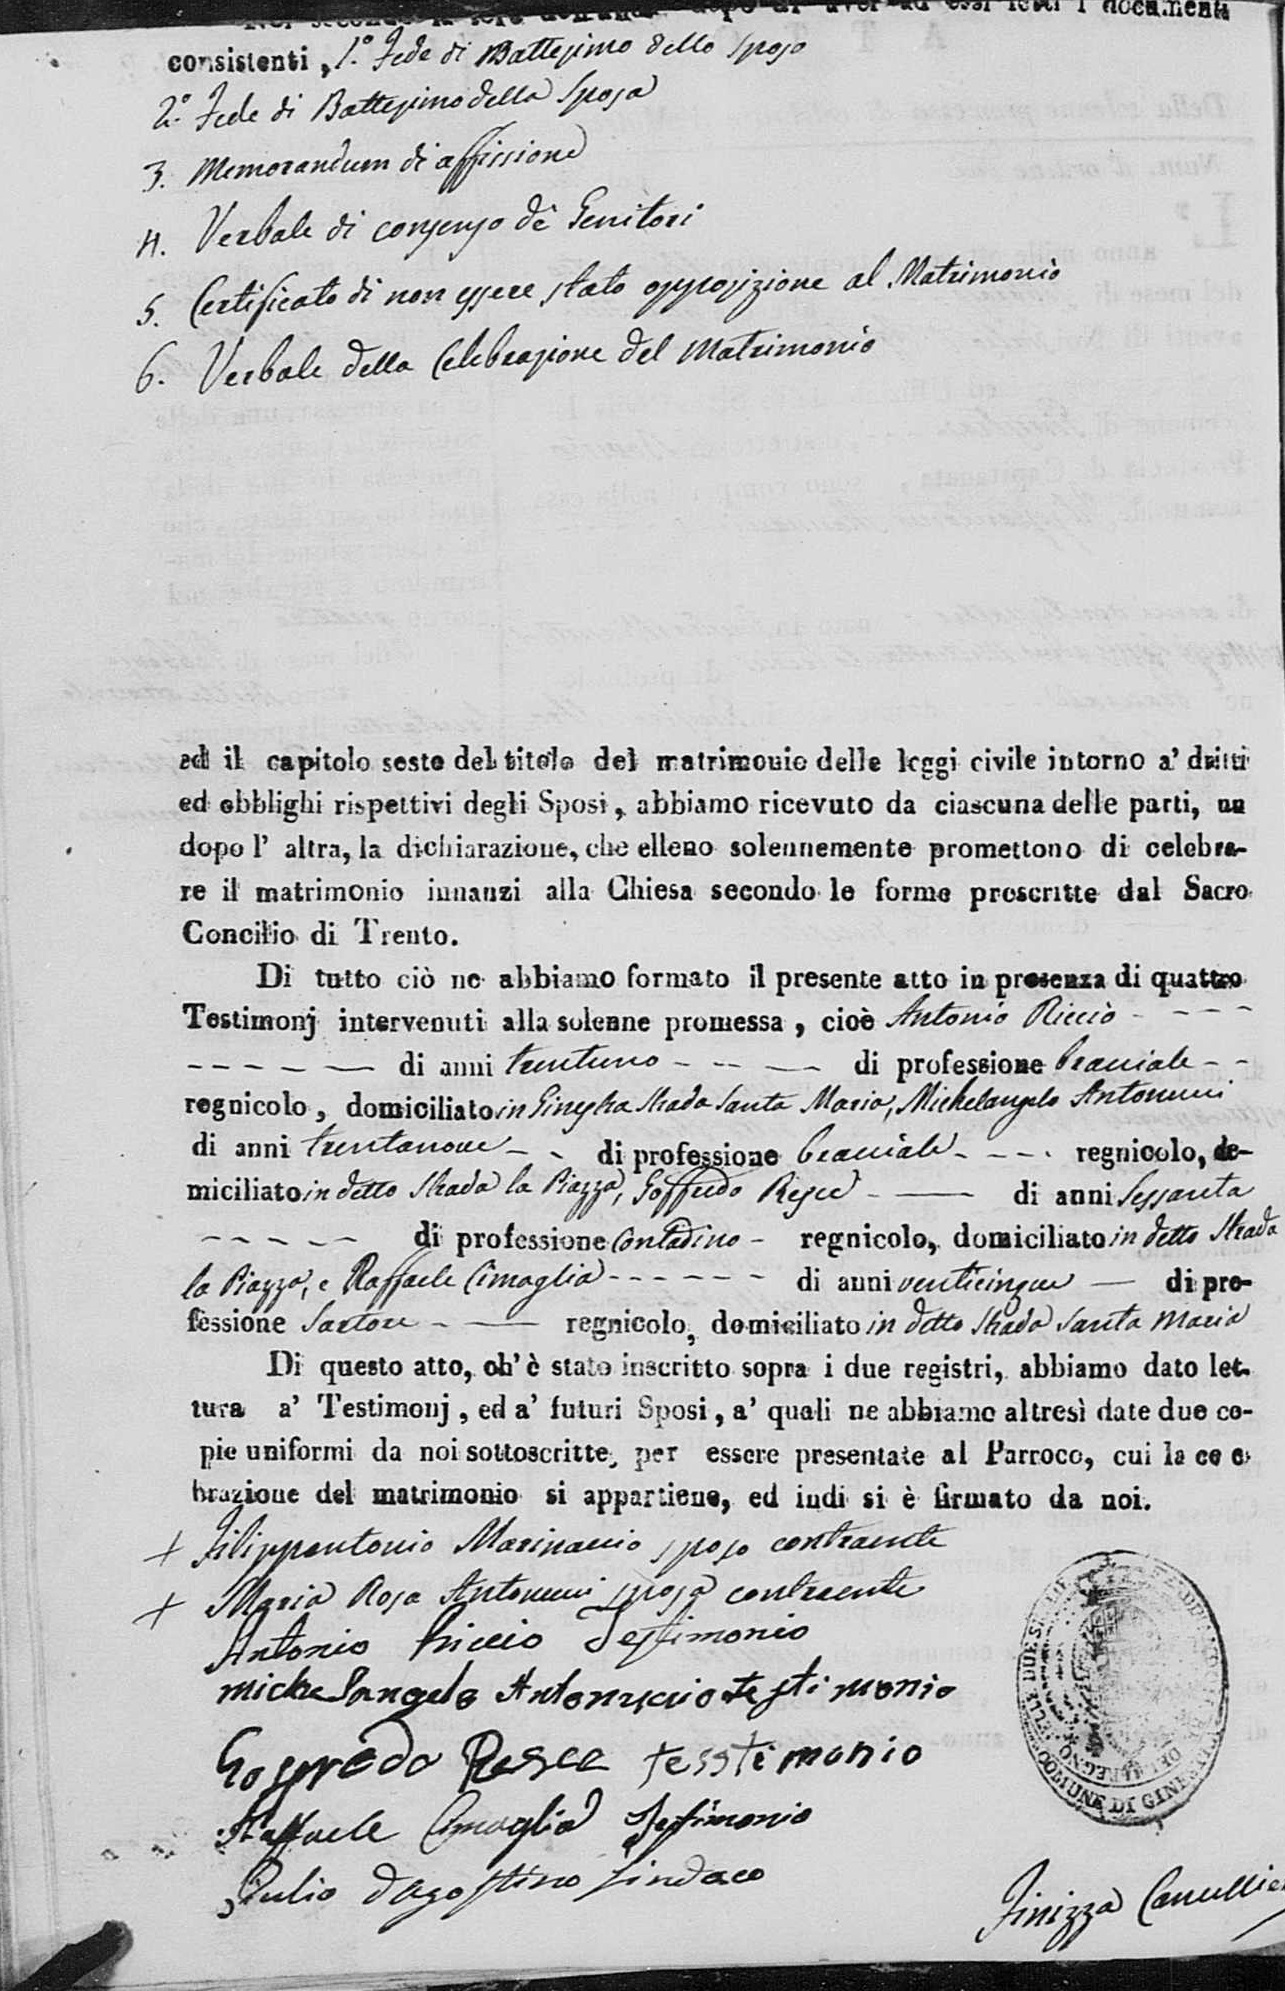 Noi secondo la loro domanda dopo di aver ad essi letti i documenti
consistenti, 1.° Fede di Battesimo dello sposo
2.° Fede di Battesimo della sposa
3. Memorandum di affissione
4. Verbale di consenso dè Genitori
5. Certificato di non essere stato opposizione al Matrimonio
6. Verbale della Celebrazione del Matrimonio
ed il capitolo sesto del titolo del matrimonio delle leggi civile intorno a' dritti
ed obblighi rispettivi degli Sposi, abbiamo ricevuto da ciascuna delle parti, un
dopo l' altra, la dichiarazione, che elleno solennemente promettono di celebra-
re il matrimonio innanzi alla Chiesa secondo le forme prescritte dal Sacro
Concilio di Trento.
Di tutto ciò ne abbiamo formato il presente atto in presenza di quattro
Testimonj intervenuti alla solenne promessa, cioè Antonio Riccio - - - -
- - - - - - di anni trentuno - - - - di professione bracciale - -
regnicolo, domiciliato in Ginestra Strada Santa Maria, Michelangelo Antonucci
di anni trentanove - - di professione bracciale - - - - regnicolo, do-
miciliato in detto Strada la Piazza, Goffredo Resce - — di anni Sessanta
- - - - - di professione Contadino - regnicolo, domiciliato in detto Strada
la Piazza, e Raffaele Cimaglia - - - - - - di anni venticinque — di pro-
fessione Sartore - — regnicolo, domiciliato in detto Strada Santa Maria
Di questo atto, ch' è stato inscritto sopra i due registri, abbiamo dato let-
tura a' Testimonj, ed a' futuri Sposi, a' quali ne abbiamo altresì date due co-
pie uniformi da noi sottoscritte, per essere presentate al Parroco, cui la ce e
brazione del matrimonio si appartiene, ed indi si è firmato da noi.
+ Filippantonio Marinaccio sposo contraente
+ Maria Rosa Antonucci sposa contraente
Antonio Riccio Testimonio
michelangelo Antonuccio testimonio
Gosfredo Resce tesstimonio
Raffaele Cimaglia Testimonio
Giulio d'Agostino Sindaco
Finizza Cancellier
COMUNE DI GINES